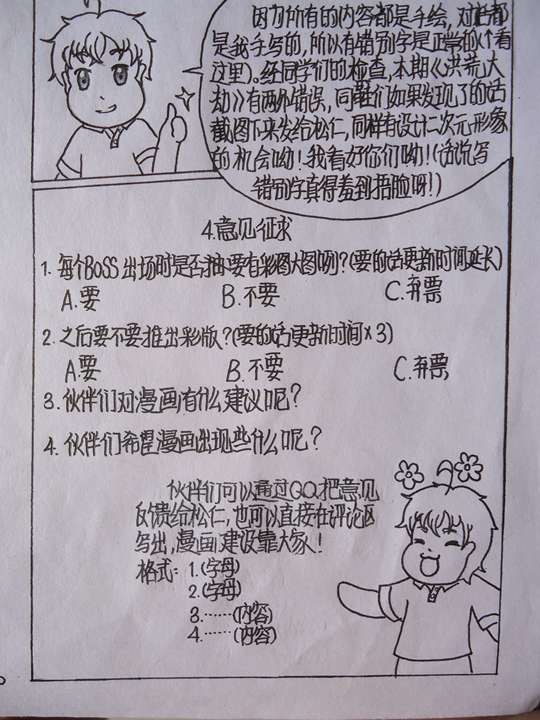 因为所有的内容都是手绘，对话都
是我手写的，所以有错别字是正常的(个看
这里)。经同学们的检查，本期《洪荒大
劫》有两处错误，同胞们如果发现了的话
截图下来发给松仁，同样有设计二次元形象
的机会呦！我看好你们呦！(话说写
错别字真得羞到捂脸呀！)
4.意见征求
1.每个BOSS出场时是否抽要有彩图大图咧？(要的话更新时间延长)
A.要 B.不要 C.弃票
2.之后要不要推出彩版？(要的话更新时间×3)
A.要 B.不要 C.弃票
3.伙伴们对漫画有什么建议呢？
4.伙伴们希望漫画出现些什么呢？
伙伴们可以通过QQ把意见
反馈给松仁，也可以直接在评论区
写出，漫画建设靠大家！
格式：1.(字母)
2.(字母)
3.……(内容)
4.……(内容)